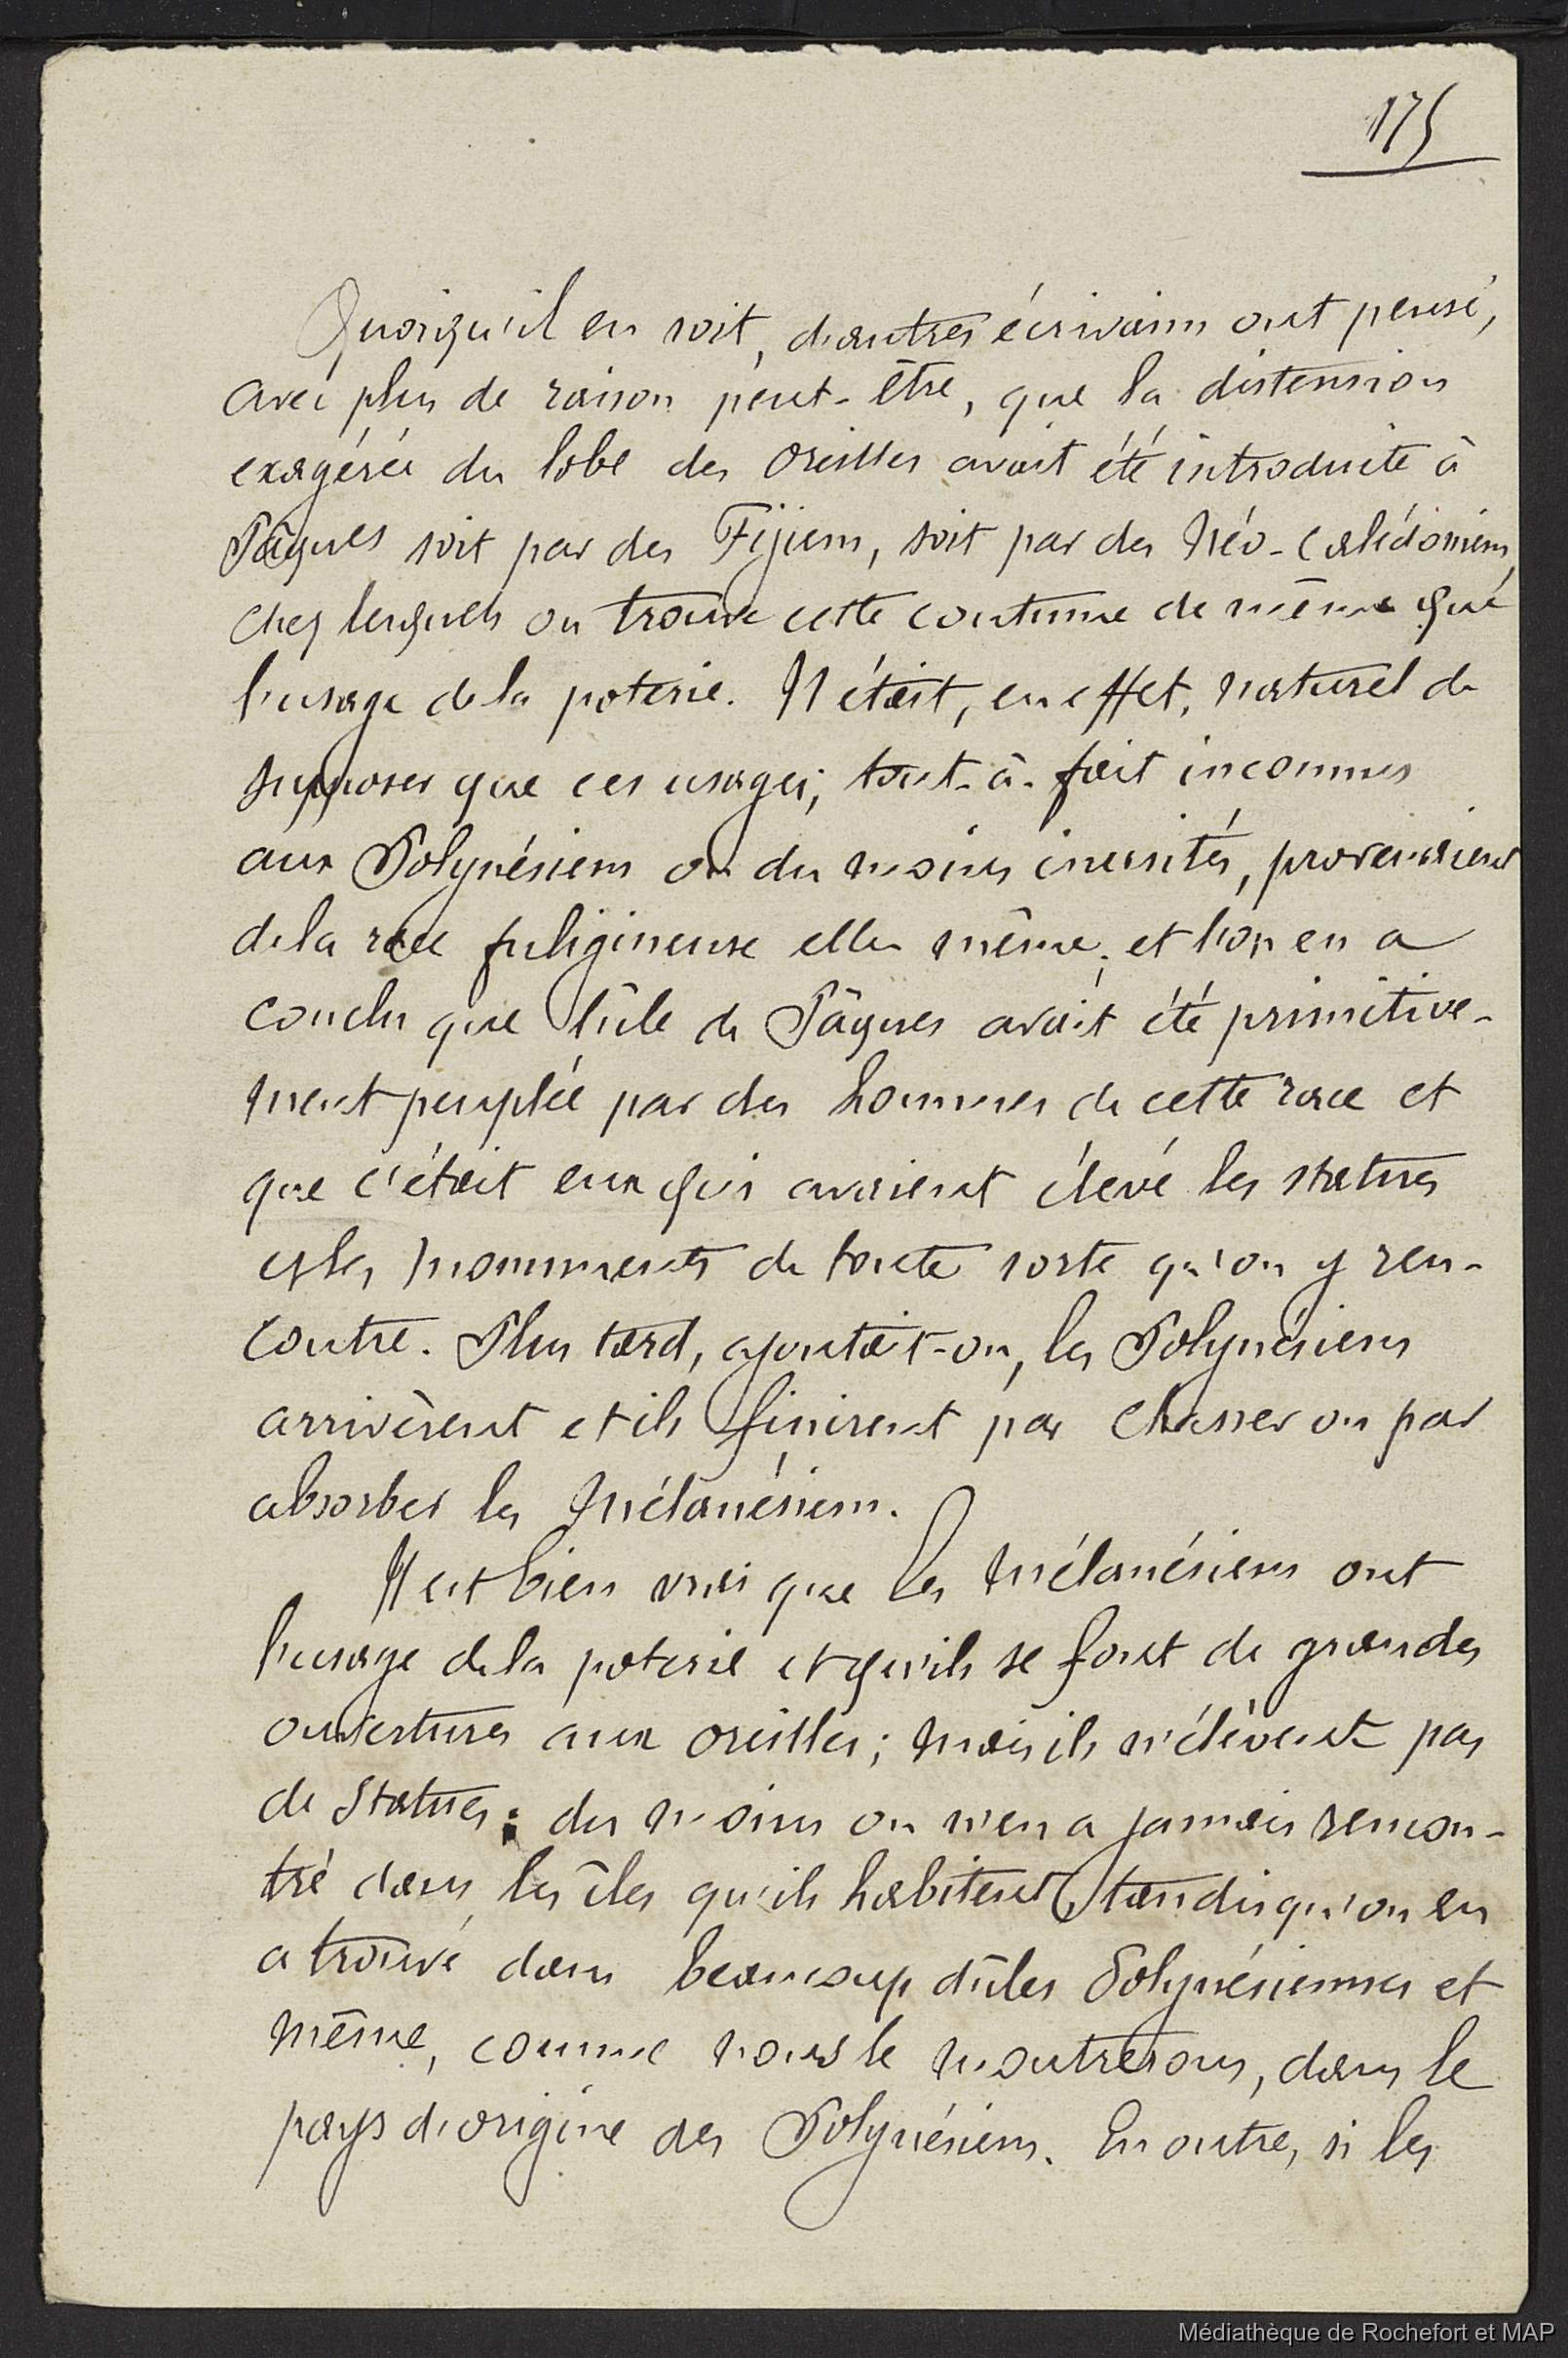 175
Quoiqu'il en soit, d'autres écrivains ont pensé,
avec plus de raison peut-être, que la distension
exagérée du lobe des oreilles avait été introduite à
Pâques soit par des Fijiens, soit par des Néo-Calédoniens,
chez lesquels on trouve cette coutume de même que
l'usage de la poterie. Il était, en effet, naturel de
supposer que ces usages, tout-à-fait inconnus
aux Polynésiens ou du moins inusités, provenaient
de la race fuligineuse elle même; et l'on en a
conclu que l'île de Pâques avait été primitive-
ment peuplée par des hommes de cette race et
que c'était eux qui avaient élevé les statues
et les monuments de toute sorte qu'on y ren-
contre. Plus tard, ajoutait-on, les Polynésiens
arrivèrent et ils finirent par chasser ou par
absorber les Mélanésiens.
Il est bien vrai que les Mélanésiens ont
l'usage de la poterie et qu'ils se font de grandes
ouvertures aux oreilles; mais ils n'élèvent pas
de statues: du moins on n'en a jamais rencon-
tré dans les îles qu'ils habitent, tandis qu'on en
a trouvé dans beaucoup d'îles Polynésiennes et
même, comme nous le montrerons, dans le
pays d'origine des Polynésiens. En outre, si les
Médiathèque de Rochefort et MAP